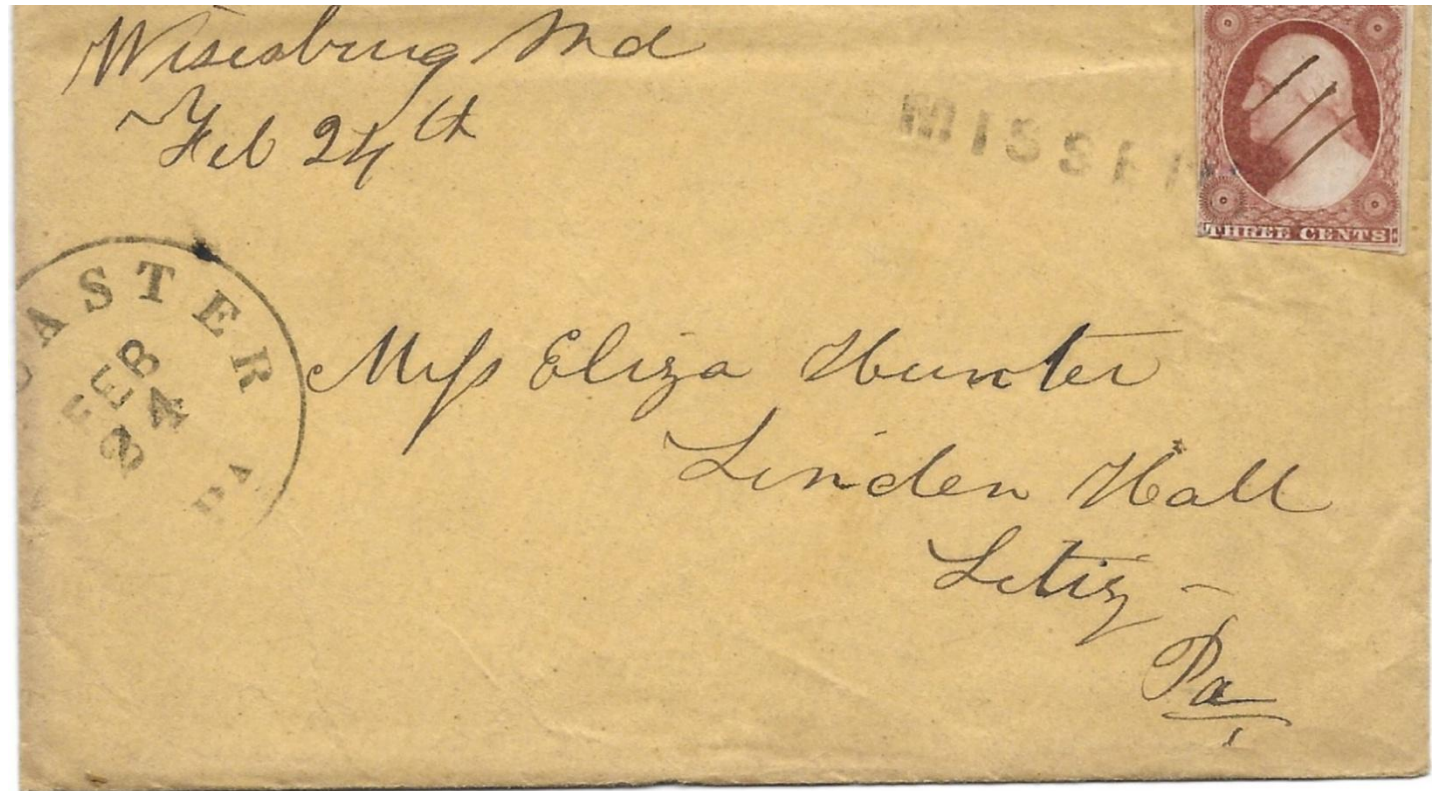 Wisesburg Md
Feb 24th
MISSEN
THREE CENTS
CASTER
FEB
24
PA
Miss Eliza Hunter
Linden Hall
Litiz
Pa